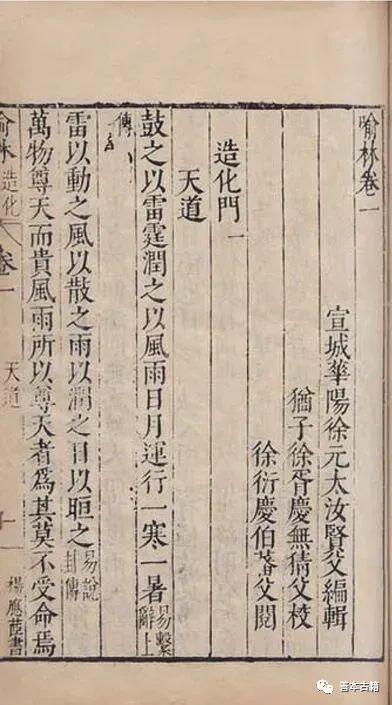 喻林卷一
宣城華陽徐元太汝賢父編輯
猶子徐胥慶無猜父校
徐衍慶伯蕃父閱
造化門一
天道
鼓之以雷霆潤之以風雨日月運行一寒一暑易繫辭上
傳
雷以動之風以散之雨以潤之日以晅之易說卦傳
萬物尊天而貴風雨所以尊天者為其莫不受命焉
俞林 造化 卷一 天道 楊應書
善本古籍